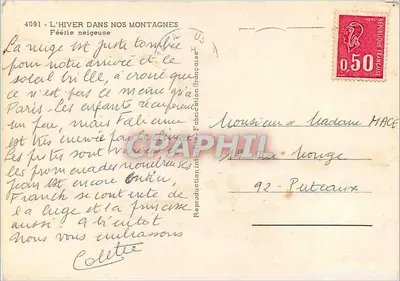 4091 - L'HIVER DANS NOS MONTAGNES
Féérie neigeuse
La neige est juste tombée
pour notre arrivée et le
soleil brille, à croire que
ce n'est pas le même qu'à
Paris. Les enfants récupèrent
un peu, mais Fabienne
est très
Les pistes sont
les promenades nombreuses
Jean est encore
Franck se contente de
la luge et la princesse
aussi! A bientôt
Nous vous embrassons
Colette
Reproduction interdite - Fabrication française
RÉPUBLIQUE FRANÇAISE
0,50
Monsieur & Madame MACE
Rouge
92 - Puteaux
CPAPHIL